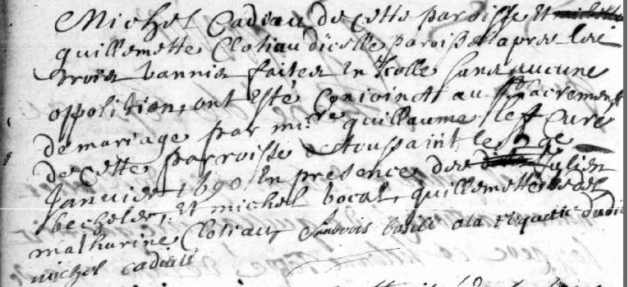 Michel Cadeau de cette paroisse et
guillemette Clotiau d'icelle paroisse apres les
trois bannies faites en Icelle sans aucune
oppolition, ont esté Conjoincts au sacrement
de mariage par mire guillaume Curé
de cette parroisse toussaint le
Janvier 1690 En presence des Julien
becheler, et michel bocal, guillemette
matharine Clotiau a la requete dudit
michel cadeau